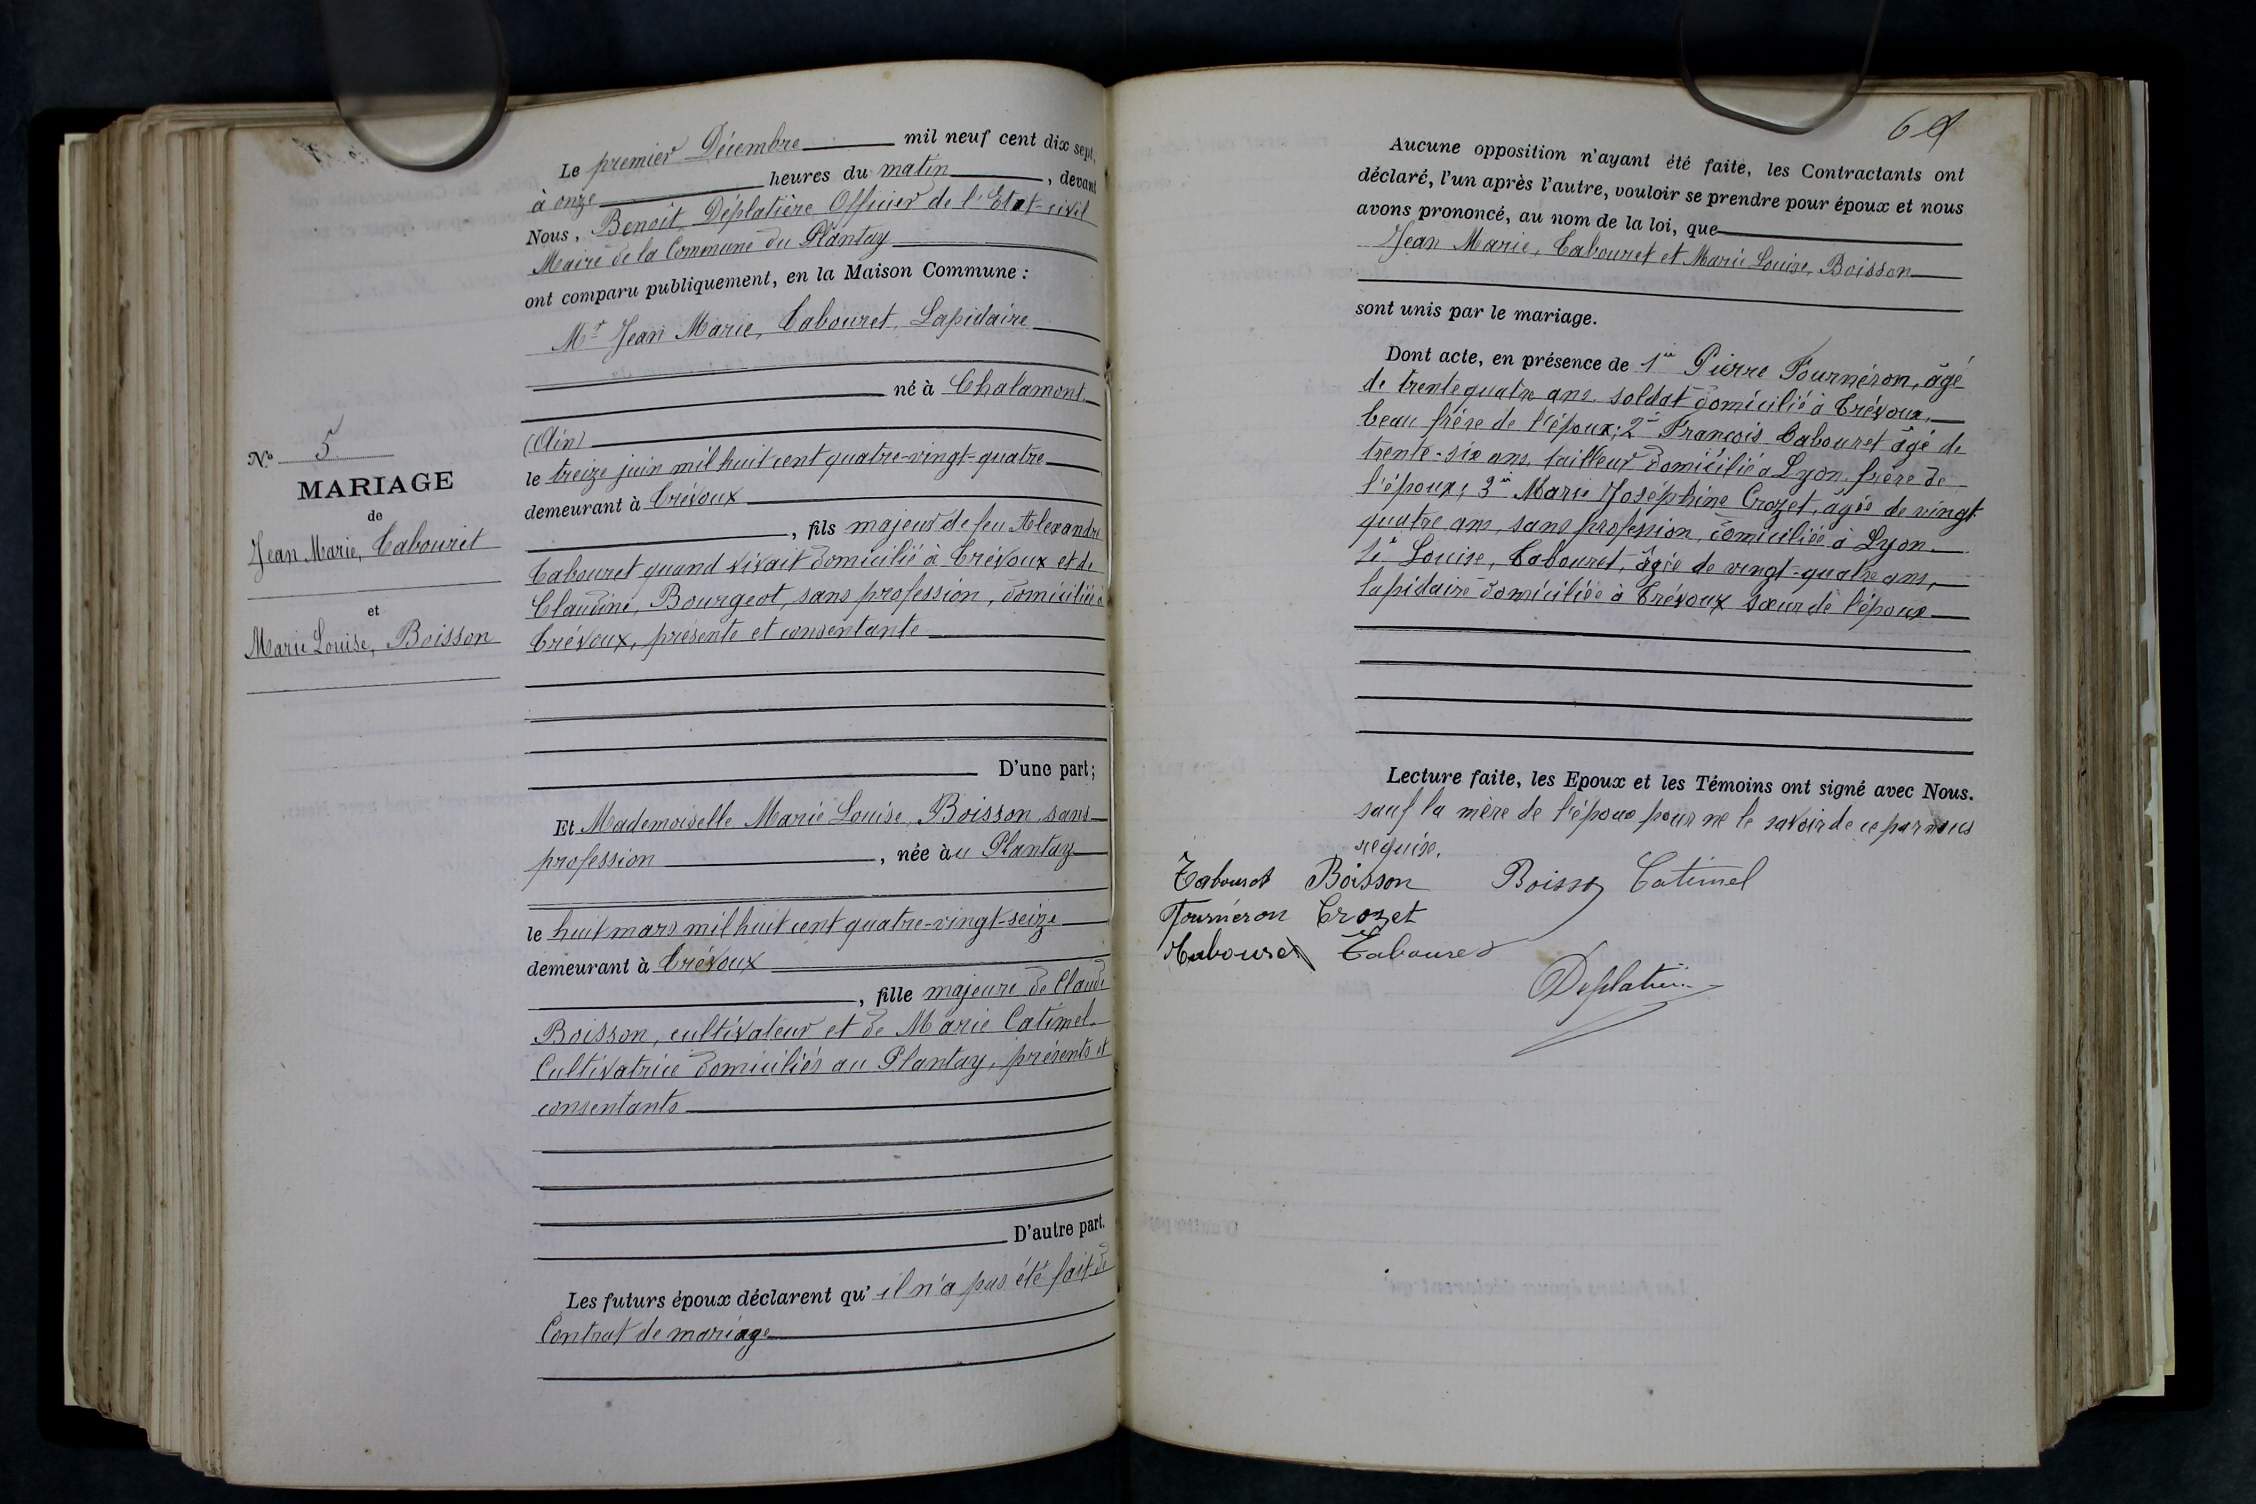 Le premier Décembre mil neuf cent dix sept,
à onze heures du matin, devant
Nous, Benoit Déplatière Officier de l'Etat-civil
Maire de la Commune du Plantay
ont comparu publiquement, en la Maison Commune :
Mr Jean Marie, Cabouret, Lapidaire
né à Chalamont
(Ain)
le treize juin mil huit cent quatre-vingt-quatre
demeurant à Trévoux
, fils majeur de feu Alexandre
Cabouret quand vivait domicilié à Trévoux et de
Claudine, Bourgeot, sans profession, domiciliée à
Trévoux, présente et consentante
D'une part;
Et Mademoiselle Marie Louise, Boisson, sans
profession, née à u Plantay
le huit mars mil huit cent quatre-vingt-seize
demeurant à Trévoux
, fille majeure de Claude
Boisson, cultivateur et de Marie Catimel
Cultivatrice domiciliés au Plantay, présents et
consentants
D'autre part.
Les futurs époux déclarent qu' il n'a pas été fait de
Contrat de mariage
No 5
MARIAGE
de
Jean Marie, Cabouret
et
Marie Louise, Boisson
69
Aucune opposition n'ayant été faite, les Contractants ont
déclaré, l'un après l'autre, vouloir se prendre pour époux et nous
avons prononcé, au nom de la loi, que
Jean Marie, Cabouret et Marie Louise, Boisson
sont unis par le mariage.
Dont acte, en présence de 1er Pierre Fournéron, âgé
de trente quatre ans, soldat domicilié à Trévoux,
beau frère de l'époux; 2e François Cabouret âgé de
trente-six ans, tailleur domicilié à Lyon, frère de
l'époux; 3e Marie Joséphine Crozet, âgée de vingt
quatre ans, sans profession, domiciliée à Lyon.
4e Louise, Cabouret, âgée de vingt-quatre ans,
lapidaire domiciliée à Trévoux sœur de l'époux
Lecture faite, les Epoux et les Témoins ont signé avec Nous.
sauf la mère de l'époux pour ne le savoir de ce par nous
requise.
Cabouret Boisson Boisson Catimel
Fournéron Crozet
Cabouret Cabouret
Déplatière